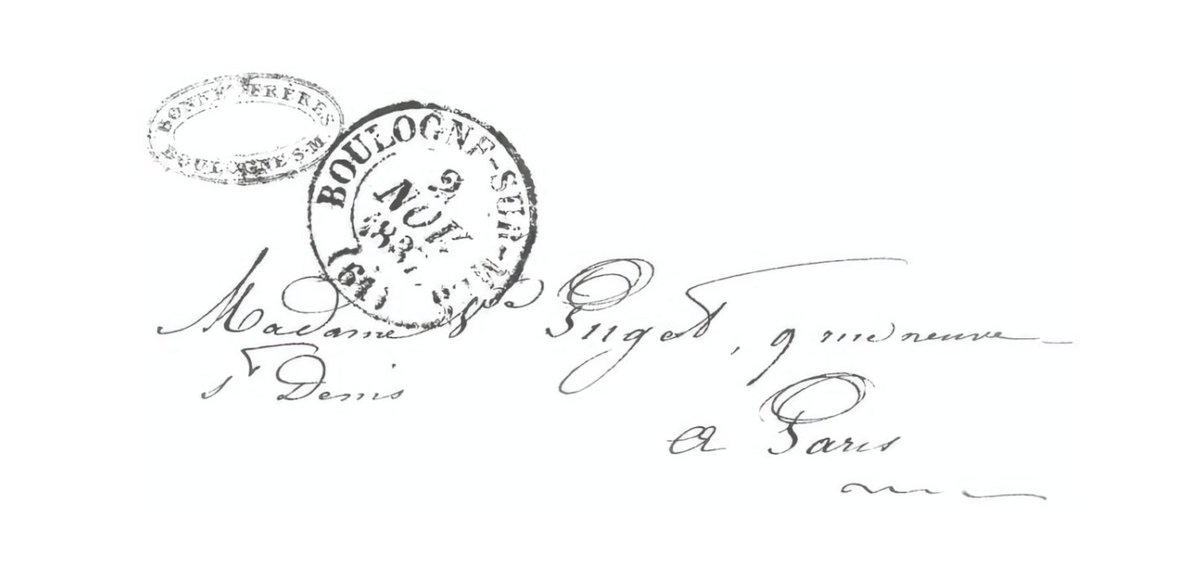 BONN FRÈRES
BOULOGNE S-M.
BOULOGNE-SUR-MER
2
NOV
(61)
Madame Vve Puget, 9 rue neuve
St Denis
a Paris